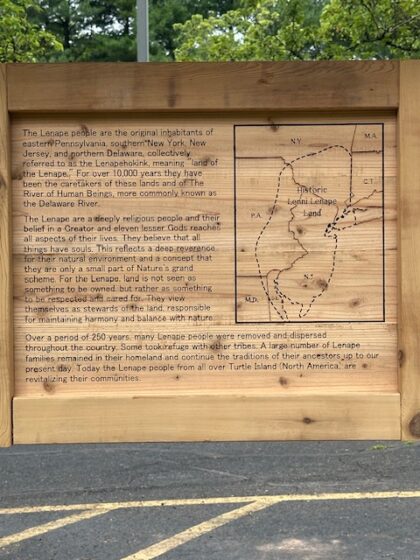 The Lenape people are the original inhabitants of
eastern Pennsylvania, southern New York, New
Jersey, and northern Delaware, collectively
referred to as the Lenapehokink, meaning "land of
the Lenape." For over 10,000 years they have
been the caretakers of these lands and of The
River of Human Beings, more commonly known as
the Delaware River.
The Lenape are a deeply religious people and their
belief in a Creator and eleven lesser Gods reaches
all aspects of their lives. They believe that all
things have souls. This reflects a deep reverence
for their natural environment and a concept that
they are only a small part of Nature's grand
scheme. For the Lenape, land is not seen as
something to be owned, but rather as something
to be respected and cared for. They view
themselves as stewards of the land, responsible
for maintaining harmony and balance with nature.
Over a period of 250 years, many Lenape people were removed and dispersed
throughout the country. Some took refuge with other tribes. A large number of Lenape
families remained in their homeland and continue the traditions of their ancestors up to our
present day. Today the Lenape people from all over Turtle Island (North America, are
revitalizing their communities.
N.Y.
M.A.
C.T.
Historic
Lenni Lenape
Land
P.A.
N.J.
M.D.